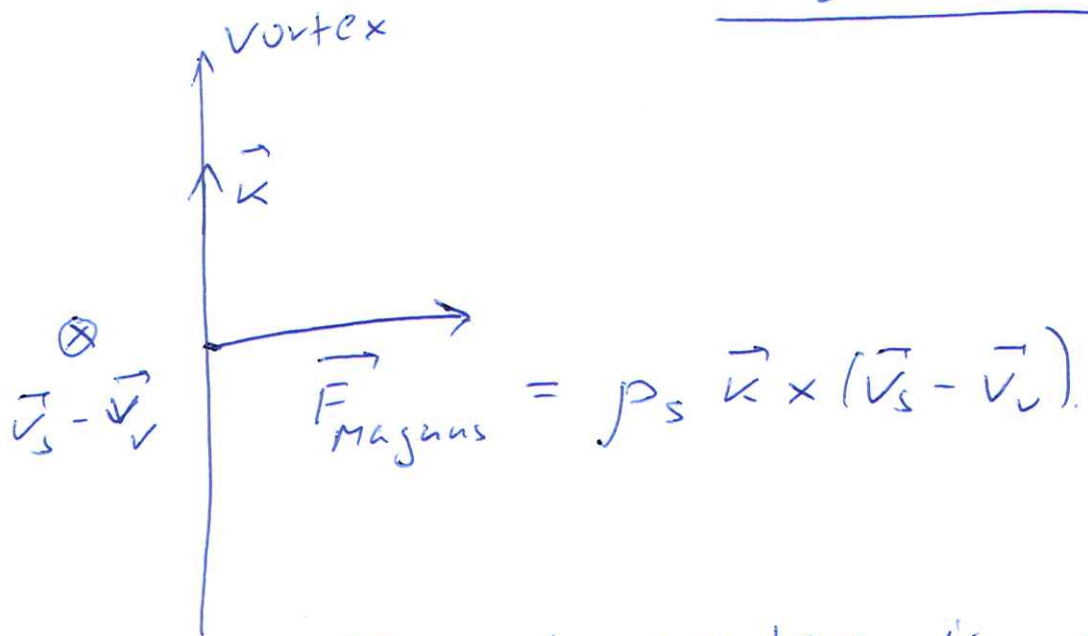 vortex
κ⃗
⊗
v⃗s - v⃗v
F⃗Magnus = ρs κ⃗ × (v⃗s - v⃗v).